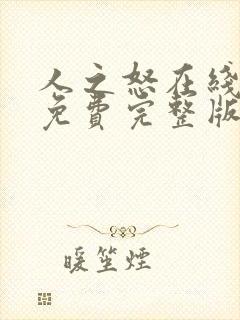 人之怒在綫
免費完整版
暖笙煙